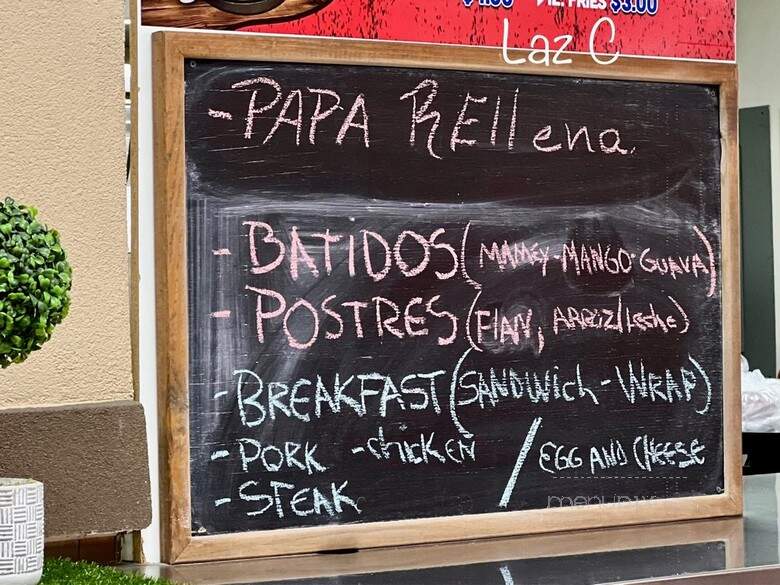 FRIES $3.00
Laz C
- PAPA REllena
- BATIDOS (MAMEY-MANGO-GUAVA)
- POSTRES (FlAN, ARROZ/leche)
- BREAKFAST (SANDWich - WRAP)
- PORK - chicKEN / EGG AND CHEESE
- STEAK